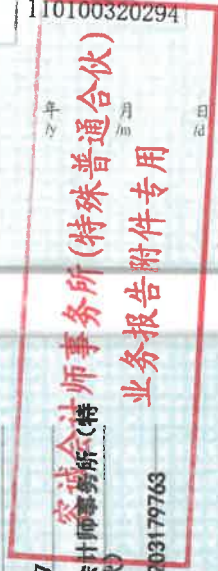 110100320294
年 月 日
/y /m /d
容诚会计师事务所(特殊普通合伙)
业务报告附件专用
计师事务所(特
203179763